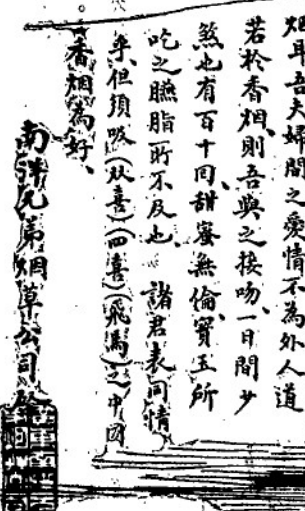 烟耳吾夫婦間之愛情不為外人道
若於香烟則吾與之接吻一日間少
煞也有百十回甜蜜無倫寶玉所
吃之臙脂所不及也諸君表同情
乎但須吸(双喜)(四喜)(飛馬)之中国
香烟為好
南洋兄弟烟草公司啓